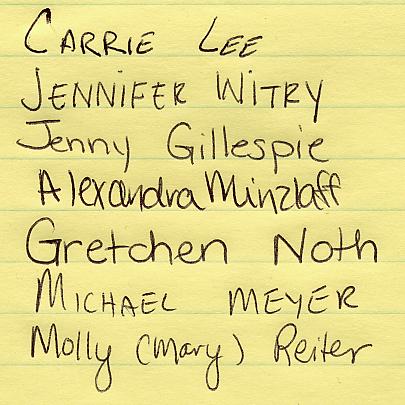 CARRIE LEE
JENNIFER WITRY
Jenny Gillespie
Alexandra Minzlaff
Gretchen Noth
MICHAEL MEYER
Molly (Mary) Reiter